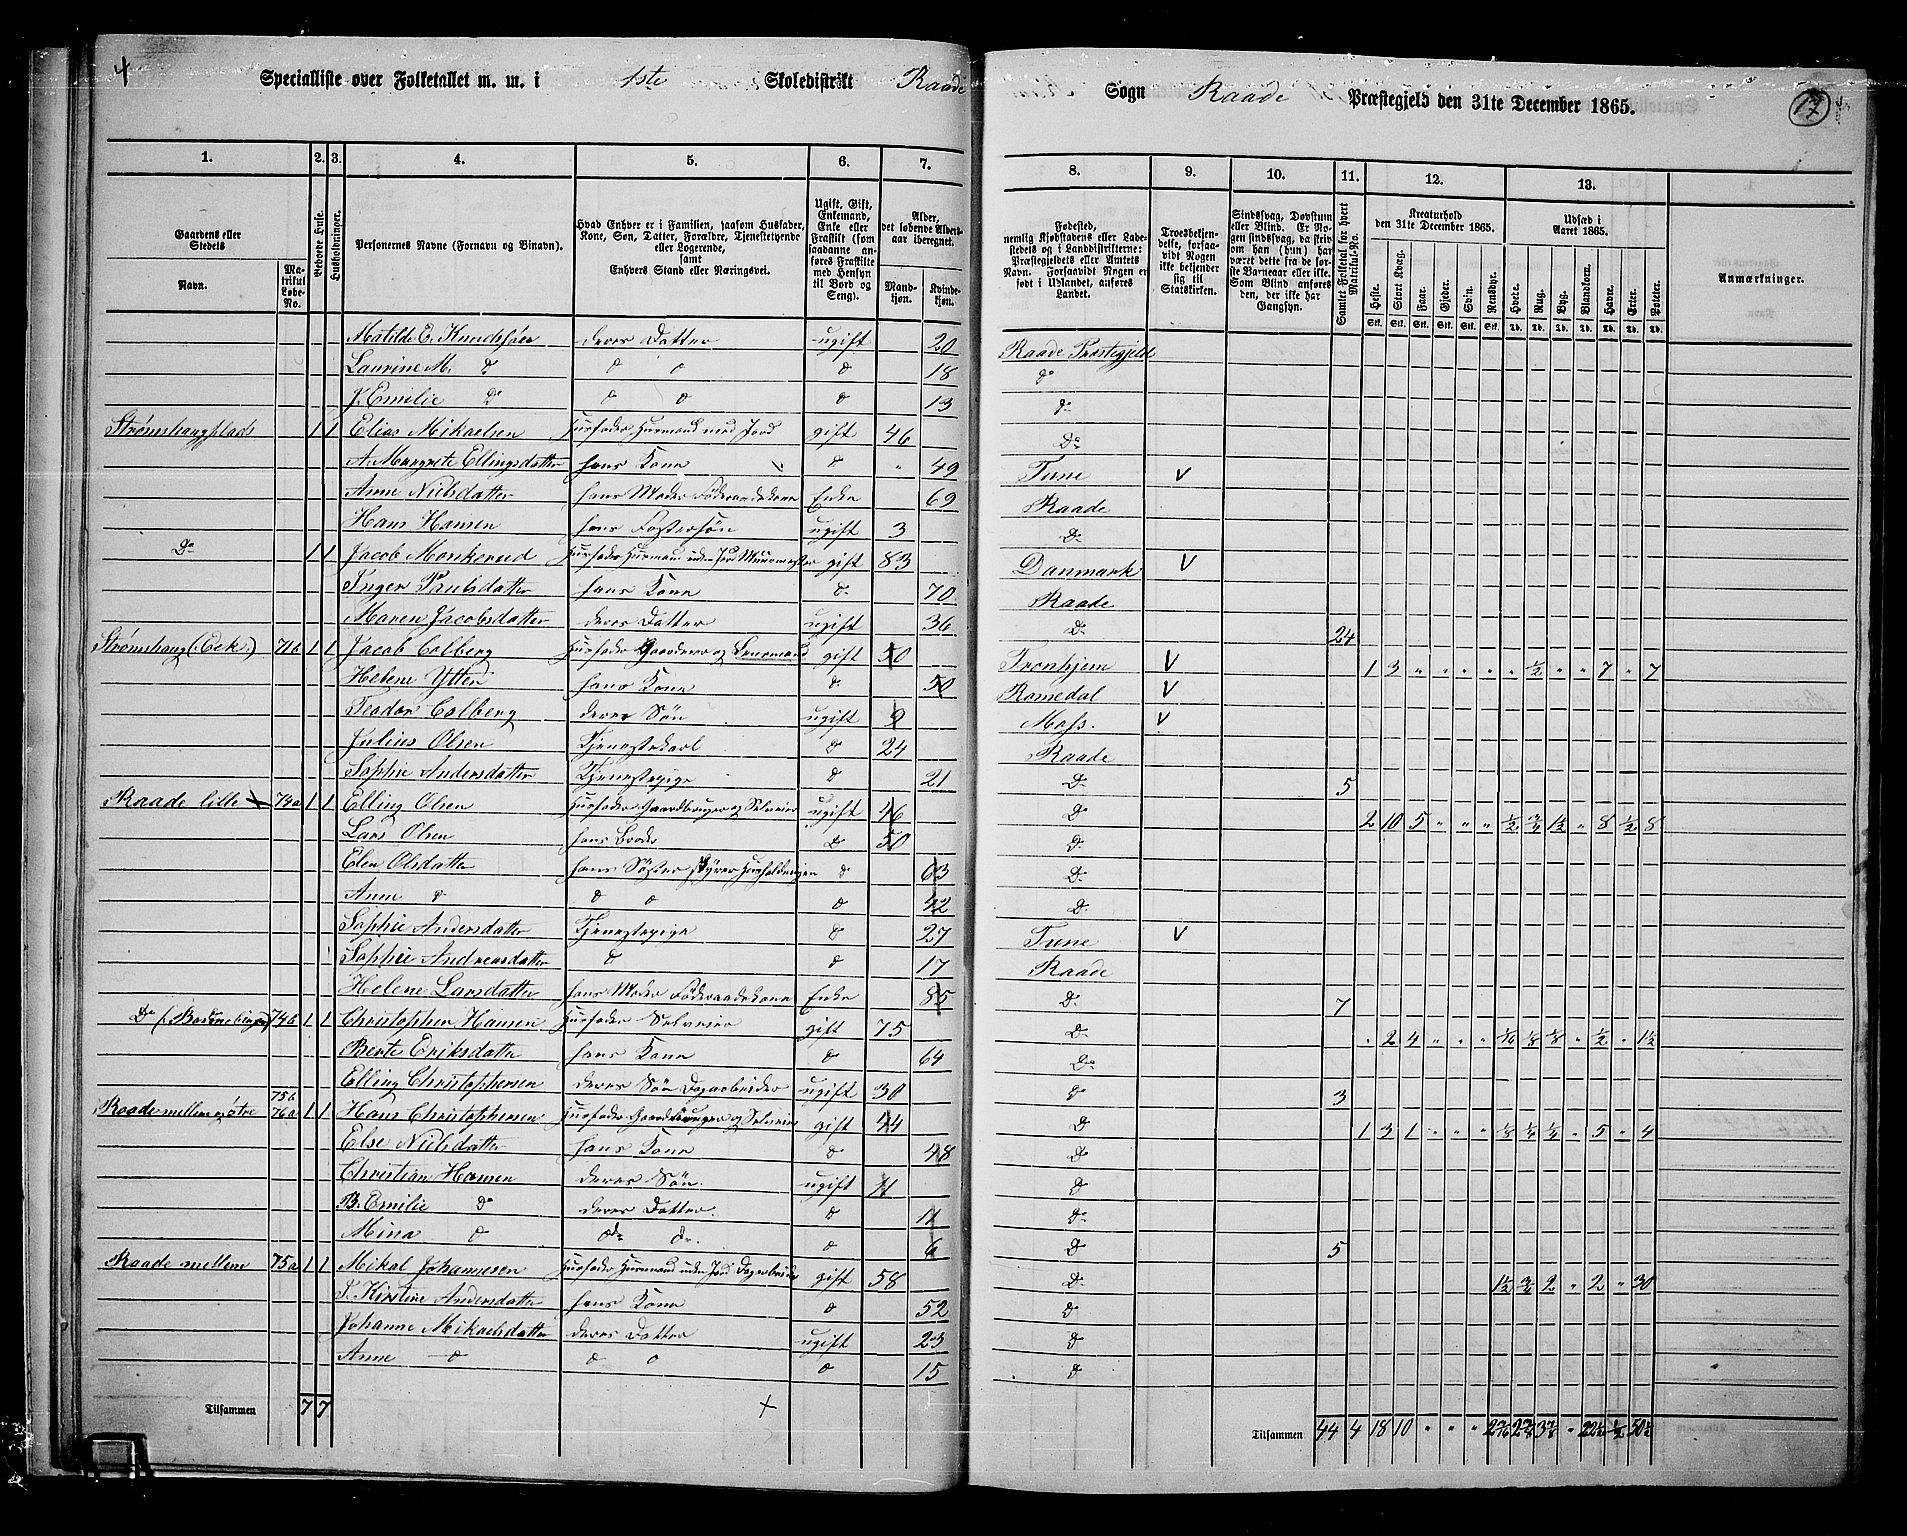 4
Specialliste over Folketallet m. m. i 1ste Skoledistrikt Raade Sogn Raade Præstegjeld den 31te December 1865.
17
1. 2. 3. 4. 5. 6. 7. 8. 9. 10. 11. 12. 13.
Gaardens eller Stedets
Navn.
Matrikul Løbe-No.
Beboede Huse.
Husholdninger.
Personernes Navne (Fornavn og Binavn).
Hvad Enhver er i Familien, saasom Husfader, Kone, Søn, Datter, Forældre, Tjenestetyende eller Logerende, samt Enhvers Stand eller Næringsvei.
Ugift, Gift, Enkemand, Enke eller Fraskilt (som saadanne anføres Fraskilte med Hensyn til Bord og Seng).
Alder, det løbende Alders-aar iberegnet.
Mandkjøn.
Kvindekjøn.
Fødested, nemlig Kjøbstadens eller Ladestedets og i Landdistrikterne: Præstegjeldets eller Amtets Navn. Forsaavidt Nogen er født i Udlandet, anføres Landet.
Troesbekjendelse, forsaavidt Nogen ikke bekjender sig til Statskirken.
Sindssvag, Døvstum eller Blind. Er Nogen sindssvag, da skriv om han (hun) har været dette fra de første Barneaar eller ikke. Som Blind anføres den, der ikke har Gangsyn.
Samlet Folketal for hvert Matrikul-No.
Kreaturhold den 31te December 1865.
Heste. Stort Kvæg. Faar. Gjeder. Svin. Rensdyr.
Udsæd i Aaret 1865.
Hvede. Rug. Byg. Blandkorn. Havre. Erter. Poteter.
Anmærkninger.
Matilde E. Knudshøer deres Datter ugift 20 Raade Præstegjeld
Laurine M. do do do do 18 do
J. Emilie Do do do do 13 do
Strømshaugplads 1 1 Elias Mikaelsen Husfader Husmand med Jord gift 46 Do
A. Margrete Ellingsdatter hans Kone do " 49 Tune V
Anne Nielsdatter hans Moder Føderaadskone Enke 69 Raade
Hans Hansen hans Fostersøn ugift 3 Do
Do 1 1 Jacob Monkerud Husfader Husmand uden Jord Muurmester gift 83 Danmark V
Inger Poulsdatter hans Kone do 70 Raade
Maren Jacobsdatter deres Datter ugift 36 Do 24
Strømshaug (Eek.) 71b 1 1 Jacob Colberg Husfader Gaardeier og Lensmand gift 50 Tronhjem V 1 3 " " " " " ½ " " 7 " 7
Helene Ytter hans Kone do 50 Romedal V
Teodor Colberg deres Søn ugift 9 Moss. V
Julius Olsen Tjenestekarl do 24 Raade
Sophie Andersdatter Tjenestepige do 21 Do 5
Raade lille 74a 1 1 Elling Olsen Husfader Gaardbruger og Selveier ugift 46 Do 2 10 5 " " " ½ ¾ 1½ " 8 ½ 8
Lars Olsen hans Broder do 50 Do
Elen Olsdatter hans Søster styrer Husholdningen do 63 Do
Anne do do do do 42 Do
Sophie Andersdatter Tjenestepige do 27 Tune V
Sophie Andreasdatter do do 17 Raade
Helene Larsdatter hans Moder Føderaadskone Enke 85 Do 7
Do 74b 1 1 Christopher Hansen Husfader Selveier gift 75 Do " 2 4 " " " 1/16 ⅛ ⅜ " ½ " 1½
Berte Eriksdatter hans Kone do 64 Do
Elling Christophersen deres Søn Dagarbeider ugift 30 do 3
Raade mellem østre 75b 76a 1 1 Hans Christophersen Husfader Gaardbruger og Selveier gift 44 Do 1 3 1 " " " ⅛ ¼ ¼ " 5 " 4
Else Nielsdatter hans Kone do 48 do
Christian Hansen deres Søn. ugift 11 do
B. Emilie Do deres Datter. do 11 Do
Mina do do Do. do 6 Do 5
Raade mellem 75a 1 1 Mikal Johannesen Husfader Husmand uden Jord Dagarbeider gift 58 Do 1½ ¾ 2 " 2 " 30
J. Kirstine Andersdatter hans Kone do 52 do
Johanne Mikaelsdatter deres Datter ugift 23 do
Anne do do do do 15 do
Tilsammen 7 7
Tilsammen 44 4 18 10 " " "